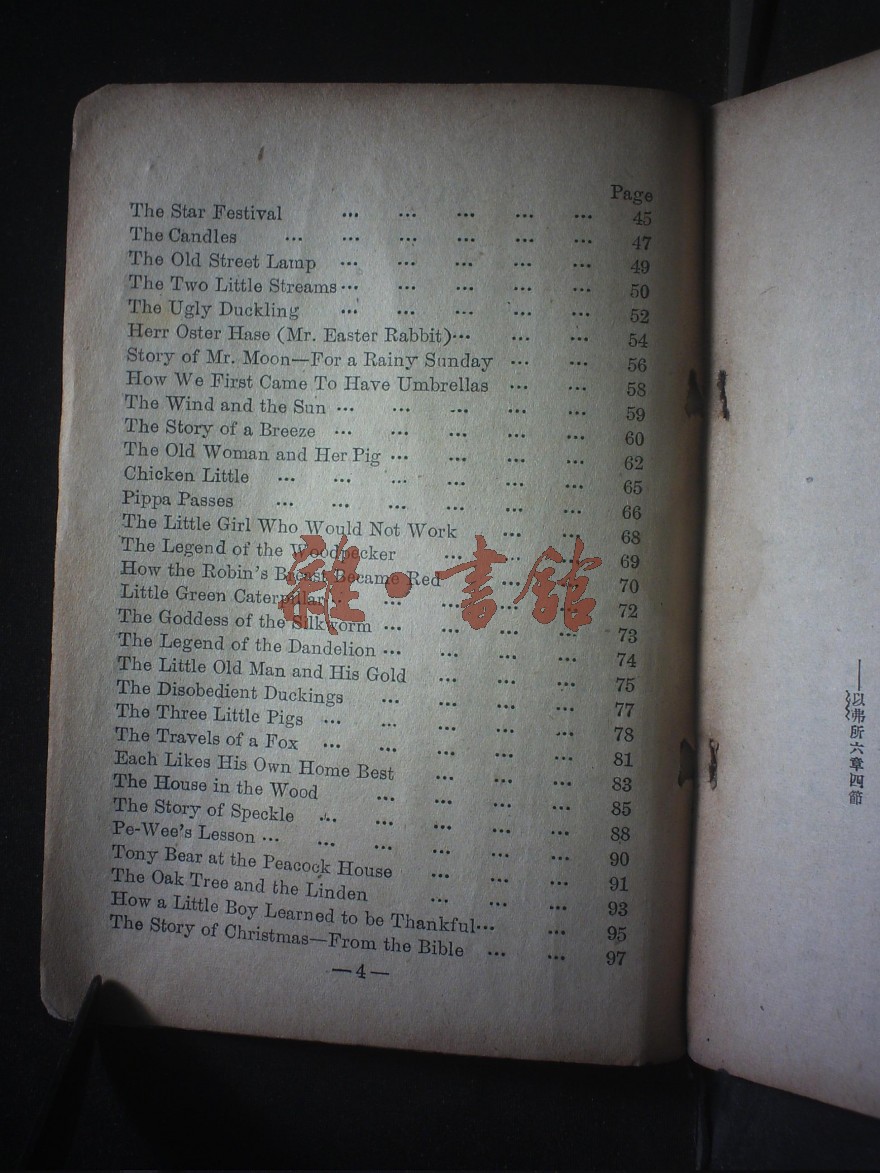 Page
The Star Festival ... ... ... ... ... 45
The Candles ... ... ... ... ... ... 47
The Old Street Lamp ... ... ... ... ... 49
The Two Little Streams ... ... ... ... ... 50
The Ugly Duckling ... ... ... ... ... 52
Herr Oster Hase (Mr. Easter Rabbit) ... ... ... 54
Story of Mr. Moon—For a Rainy Sunday ... ... 56
How We First Came To Have Umbrellas ... ... 58
The Wind and the Sun ... ... ... ... ... 59
The Story of a Breeze ... ... ... ... ... 60
The Old Woman and Her Pig ... ... ... ... 62
Chicken Little ... ... ... ... ... ... 65
Pippa Passes ... ... ... ... ... ... 66
The Little Girl Who Would Not Work ... ... 68
The Legend of the Woodpecker ... ... ... 69
How the Robin's Breast Became Red ... ... 70
Little Green Caterpillar ... ... ... ... ... 72
The Goddess of the Silkworm ... ... ... ... 73
The Legend of the Dandelion ... ... ... ... 74
The Little Old Man and His Gold ... ... ... 75
The Disobedient Duckings ... ... ... ... 77
The Three Little Pigs ... ... ... ... ... 78
The Travels of a Fox ... ... ... ... ... 81
Each Likes His Own Home Best ... ... ... 83
The House in the Wood ... ... ... ... 85
The Story of Speckle ... ... ... ... ... 88
Pe-Wee's Lesson ... ... ... ... ... ... 90
Tony Bear at the Peacock House ... ... ... 91
The Oak Tree and the Linden ... ... ... 93
How a Little Boy Learned to be Thankful ... ... 95
The Story of Christmas—From the Bible ... ... 97
—4—
雜·書館
——以弗所六章四節